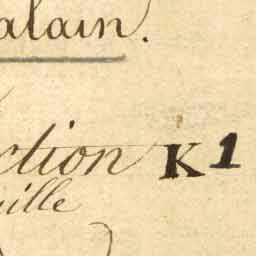 alain.
ction K1
ille